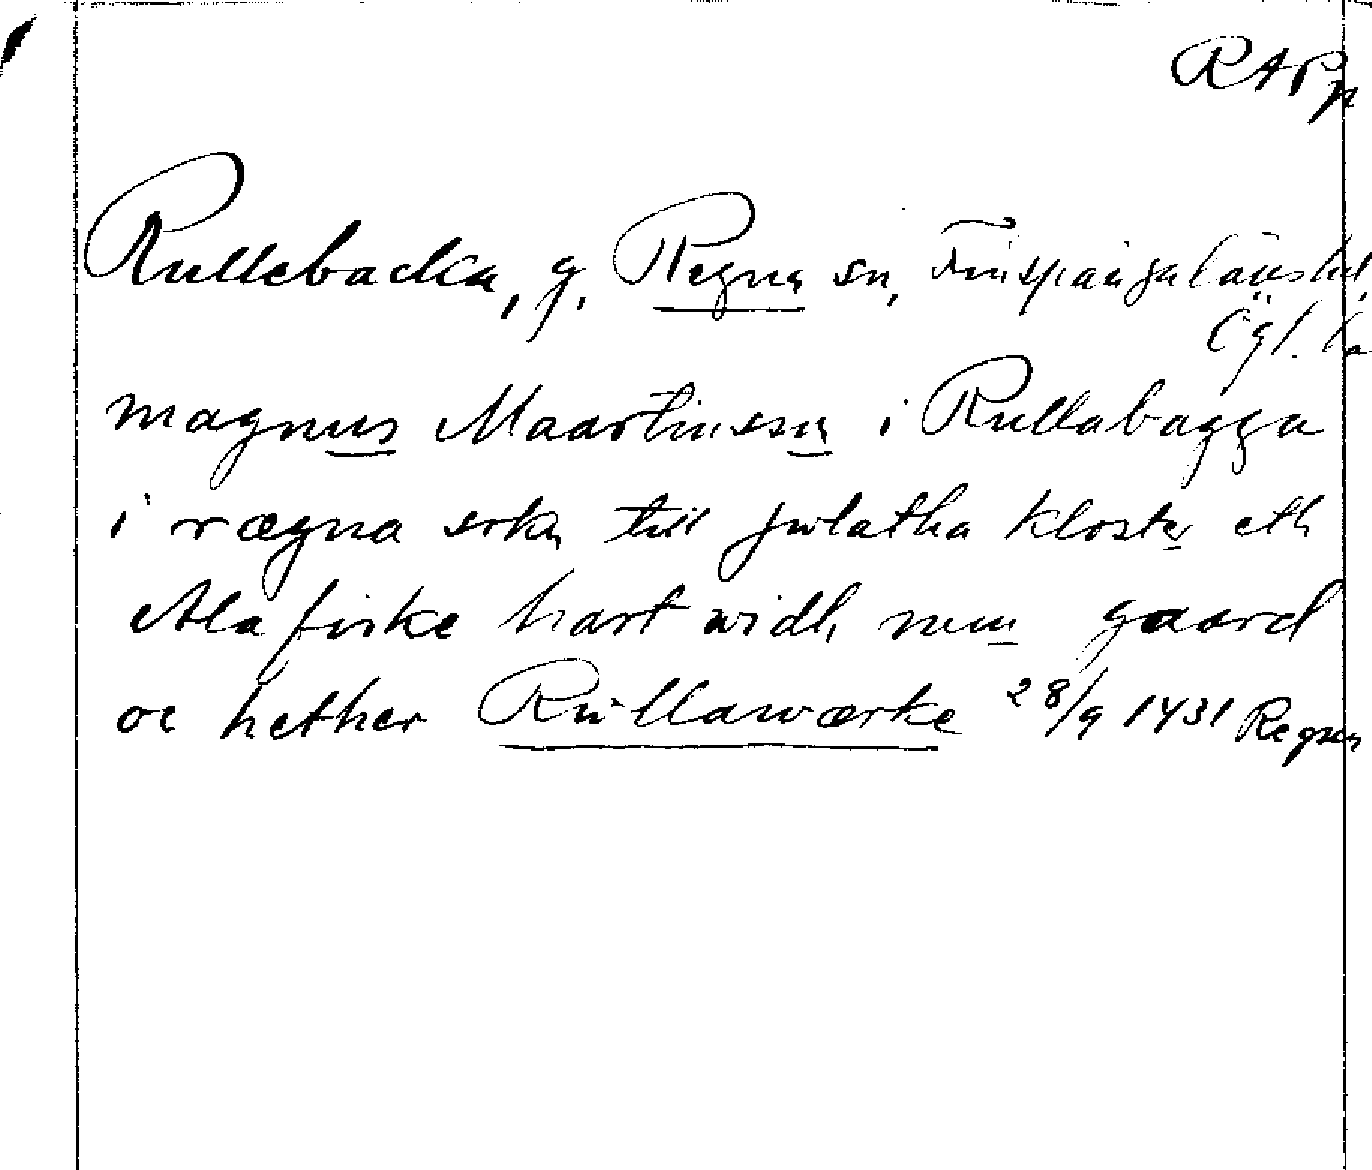 RAPp
Rullebacka, g, Regna sn, Finspånga länshd,
Ögl. la
magnus Maartinsson i Rullabagga
i rægna sokn till julatha kloster eth
Ala fiske hart widh min gaard
oc hether Rullawærke 28/9 1431 Regna